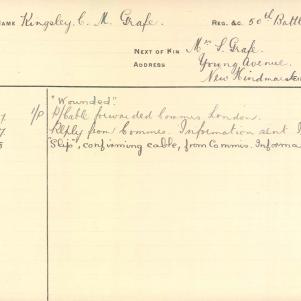 NAME Kingsley C. M. Grafe. REG. &C. 50th Battl
NEXT OF KIN Mr S. Grafe.
ADDRESS Young Avenue.
New Hindmarsh
"Wounded".
1/P Cable forwarded Commis London.
Reply from Commis. Information sent
"Slip", confirming cable, from Commis. Informa